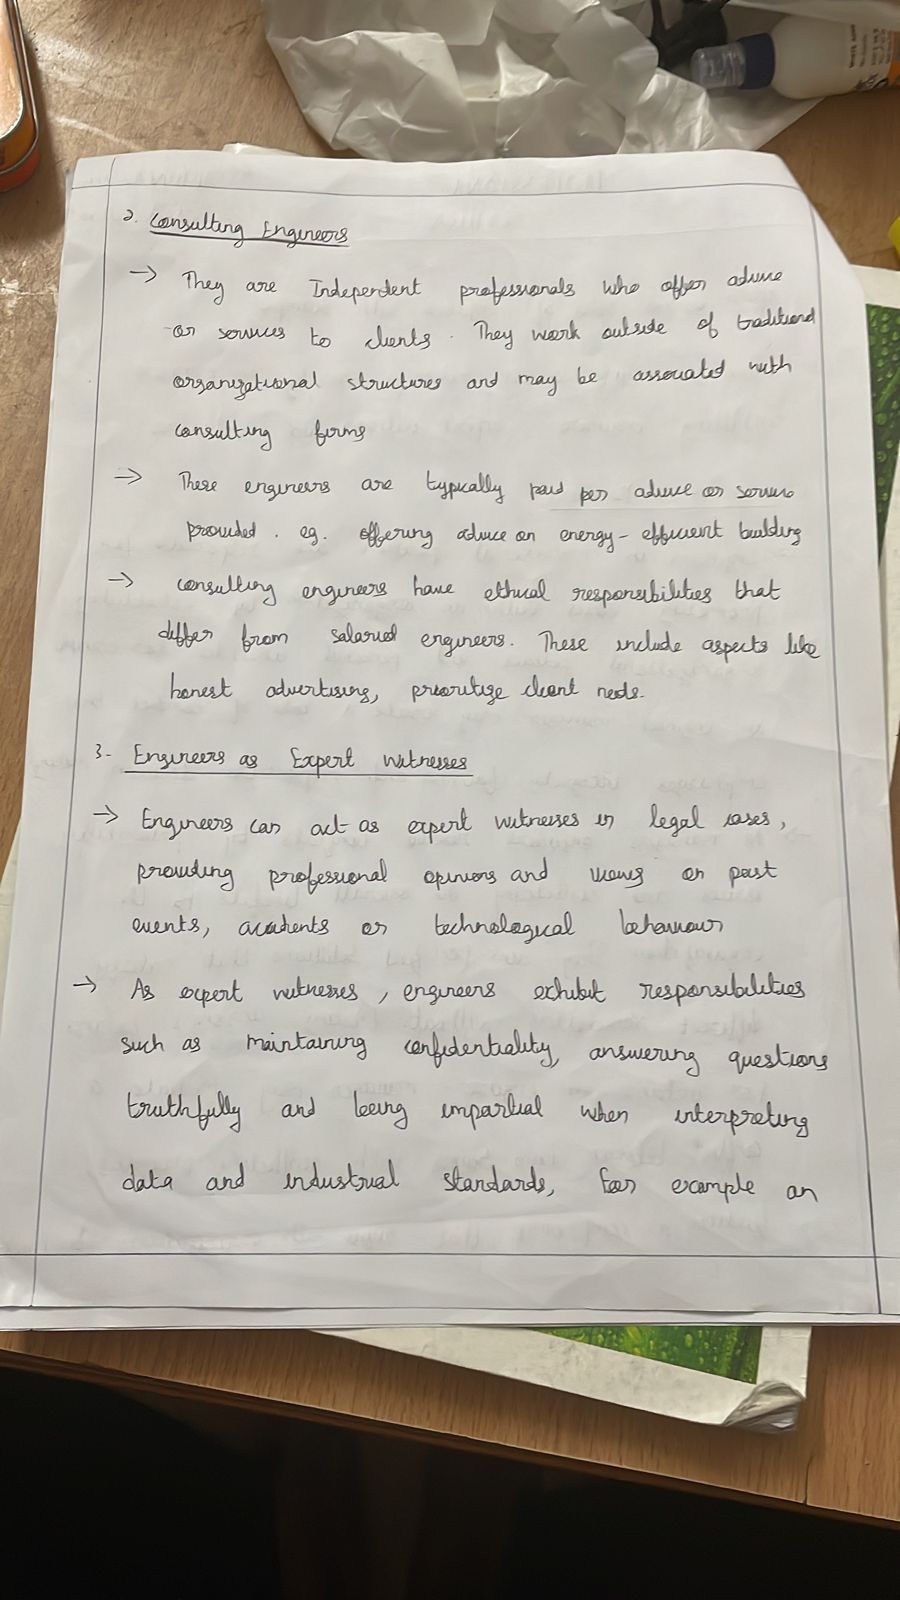 2. Consulting Engineers
→ They are Independent professionals who offer advice
or services to clients. They work outside of traditional
organizational structures and may be associated with
consulting firms
→ These engineers are typically paid per advice or service
provided. eg. offering advice on energy-efficient building
→ consulting engineers have ethical responsibilities that
differ from salaried engineers. These include aspects like
honest advertising, prioritize client needs.
3- Engineers as Expert Witnesses
→ Engineers can act as expert witnesses in legal cases,
providing professional opinions and views on past
events, accidents or technological behaviour
→ As expert witnesses, engineers exhibit responsibilities
such as maintaining confidentiality, answering questions
truthfully and being impartial when interpreting
data and industrial standards, For example an